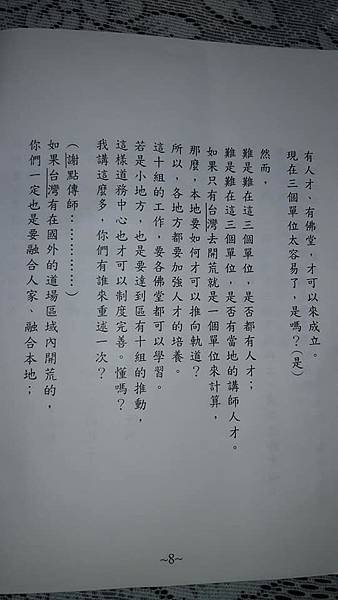 有人才、有佛堂，才可以來成立。
現在三個單位太容易了，是嗎？（是）
然而，
難是難在這三個單位，是否都有人才；
難是難在這三個單位，是否有當地的講師人才。
如果只有台灣去開荒就是一個單位來計算，
那麼，本地要如何才可以推向軌道？
所以，各地方都要加強人才的培養。
這十組的工作，要各佛堂都可以學習。
若是小地方，也是要達到區有十組的推動，
這樣道務中心也才可以制度完善。懂嗎？
我講這麼多，你們有誰來重述一次？
（謝點傳師：…………）
如果台灣有在國外的道場區域內開荒的，
你們一定也是要融合人家、融合本地；
~8~